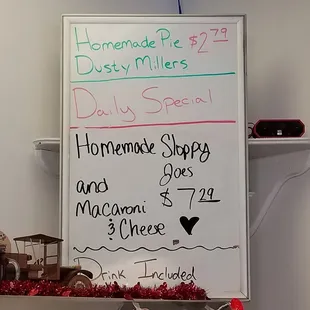 Homemade Pie $2.79
Dusty Millers
Daily Special
Homemade Sloppy
Joes
and $7.29
Macaroni
& Cheese ♥
Drink Included